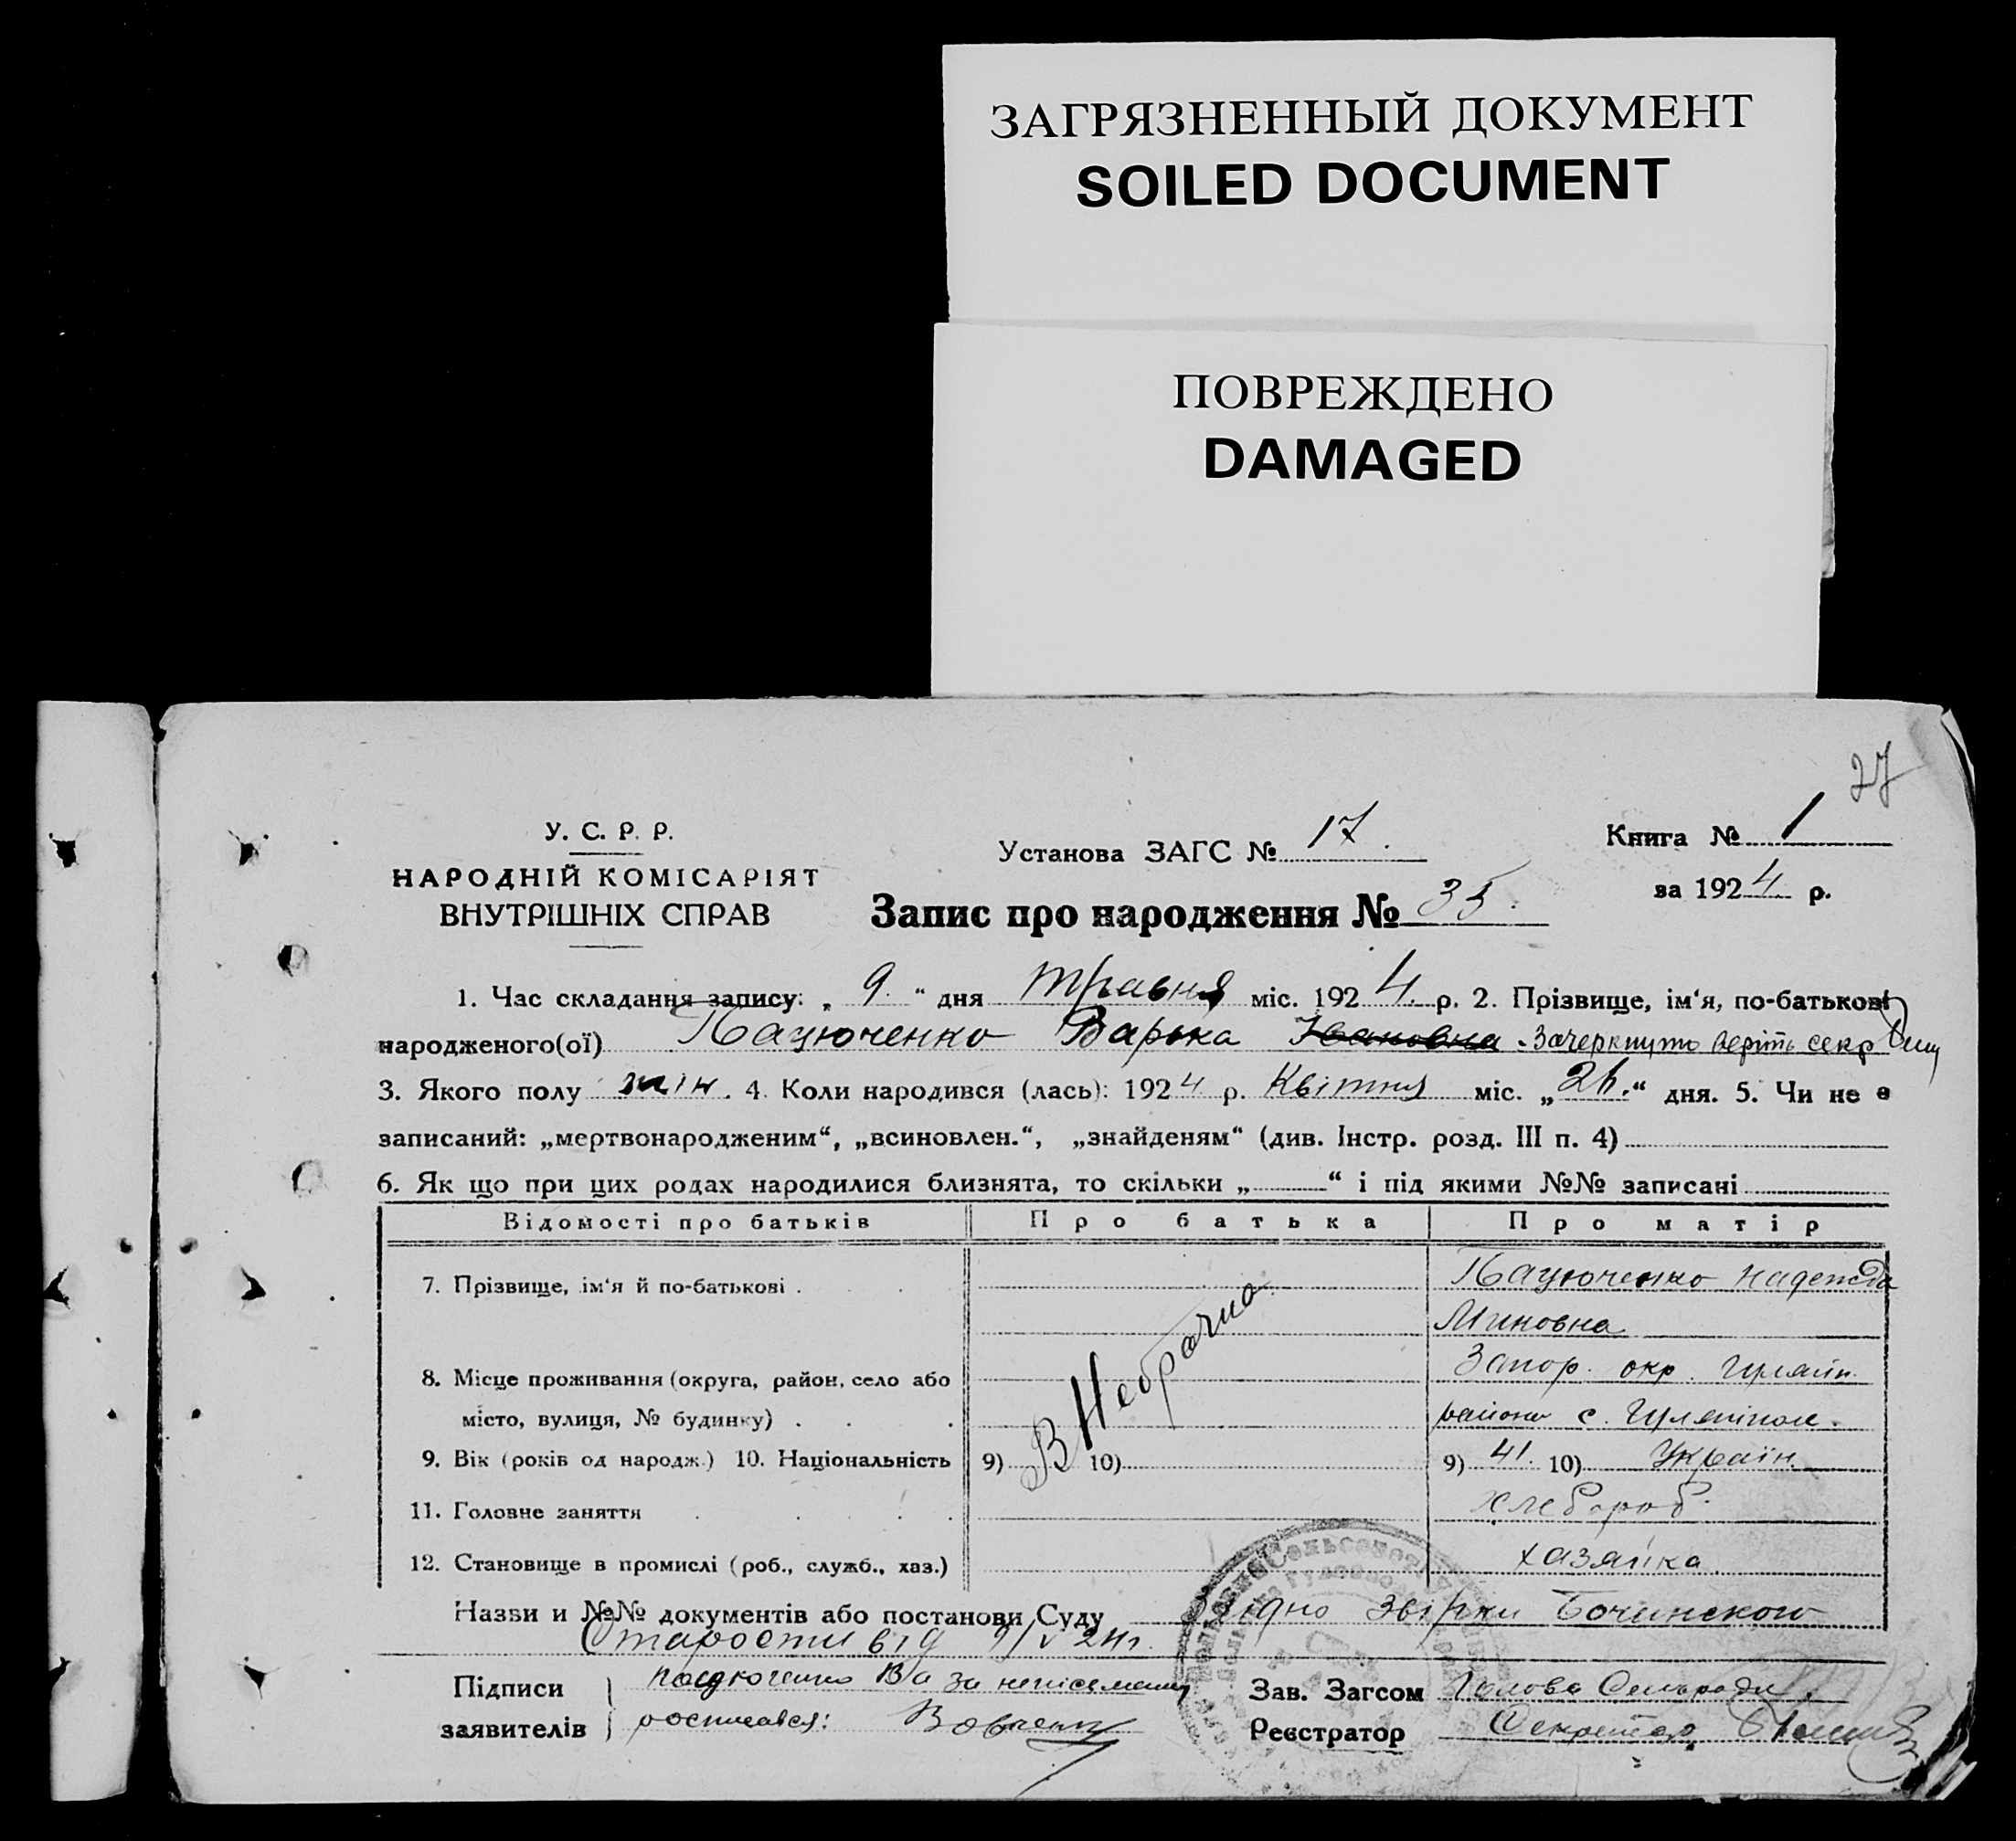 ЗАГРЯЗНЕННЫЙ ДОКУМЕНТ
SOILED DOCUMENT
ПОВРЕЖДЕНО
DAMAGED
27
У. С. Р. Р.
НАРОДНІЙ КОМІСАРІЯТ
ВНУТРІШНІХ СПРАВ
Установа ЗАГС № 17.
Запис про народження № 35.
Книга № 1
за 1924 р.
1. Час складання запису: „ 9. “ дня травня міс. 1924. р. 2. Прізвище, ім‘я, по-батькові
народженого(ої) Пацюченко Варька Івановна - Зачеркнуто веріть секр
3. Якого полу жін. 4. Коли народився (лась): 1924 р. Квітня міс. „26.“ дня. 5. Чи не є
записаний: „мертвонародженим“, „всиновлен.“, „знайденям“ (див. Інстр. розд. III п. 4)
6. Як що при цих родах народилися близнята, то скільки „ “ і під якими №№ записані
Відомості про батьків Про батька Про матір
7. Прізвище, ім‘я й по-батькові . Пацюченко Надежда
Миновна
8. Місце проживання (округа, район, село або Запор. окр. Гуляйп.
місто, вулиця, № будинку) . района с. Гуляйполе.
В Небрачна
9. Вік (років од народж.) 10. Національність 9) 10) 9) 41. 10) Україн.
11. Головне заняття хлебороб.
12. Становище в промислі (роб., служб., хаз.) хазяйка.
Назви и №№ документів або постанови Суду Згідно звірки Бочинского
Старости від 9/V 24г.
Підписи Пацюченко Ва за неписьмену Зав. Загсом Голова Сельради
заявителів росписався: Реєстратор Секретар